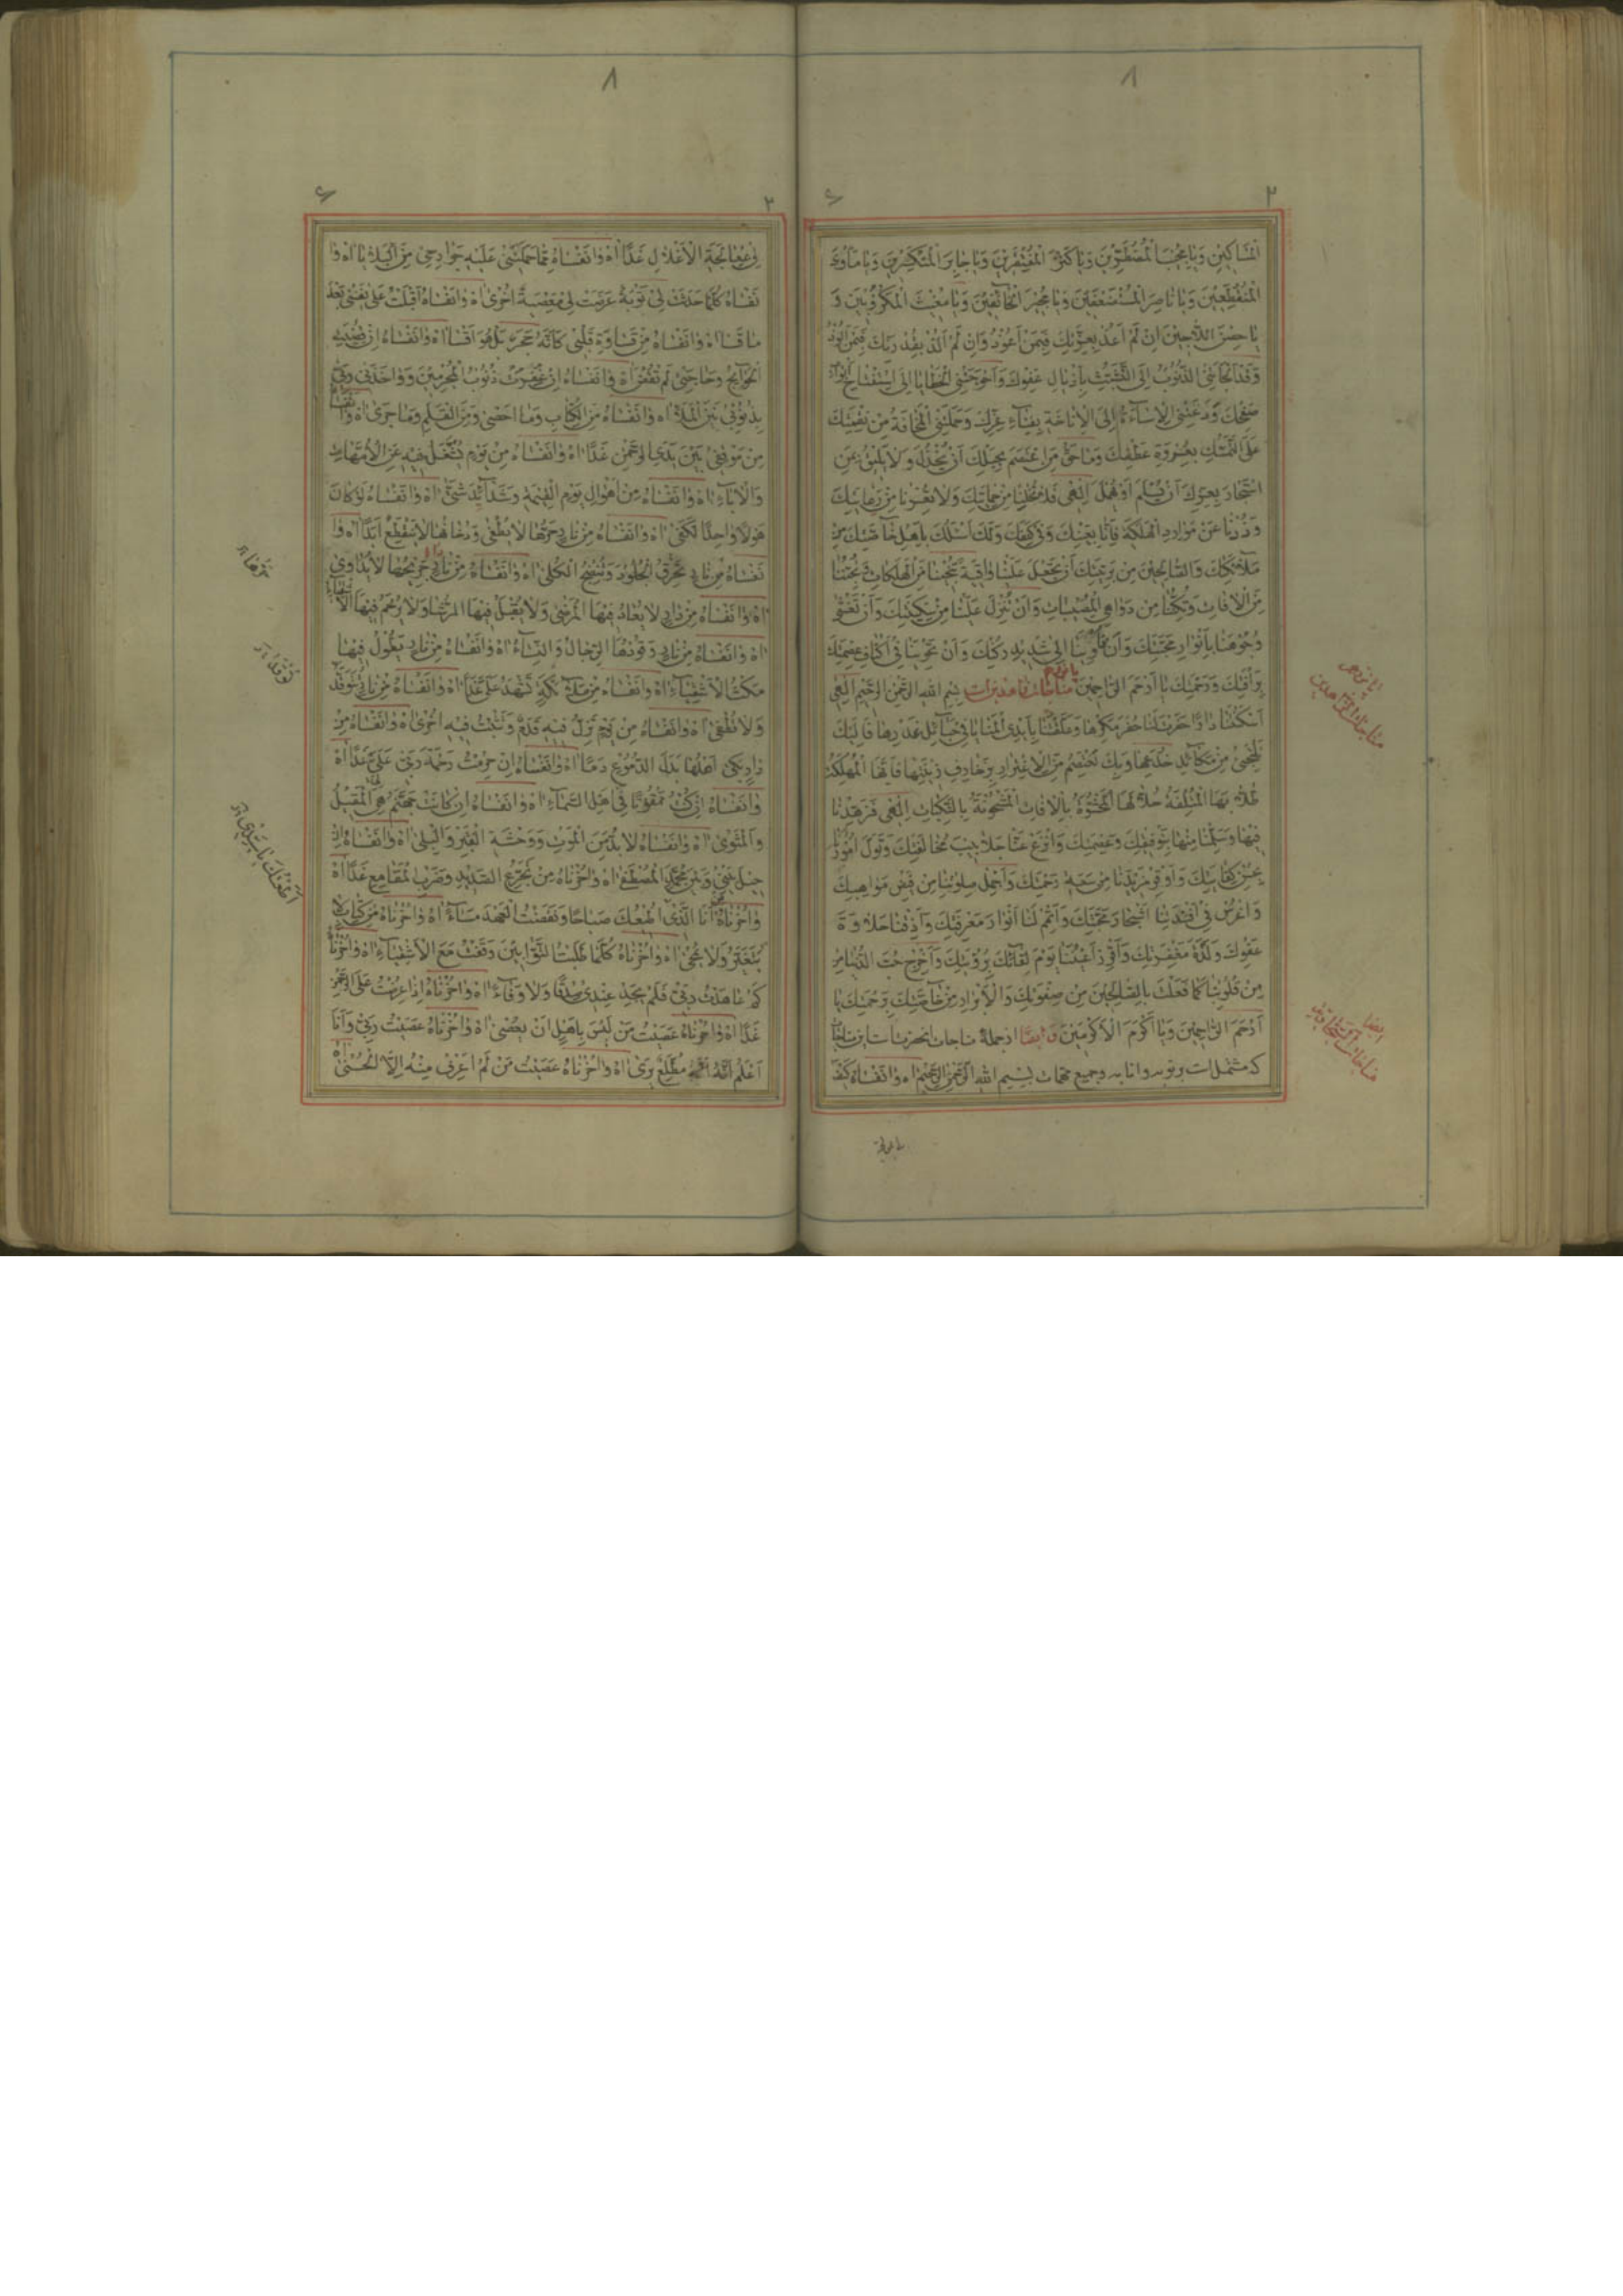 المساكين ويا مجيب المضطرين ويا كنز المفتقرين ويا جابر المنكسرين ويا مأوى
المنقطعين ويا ناصر المستضعفين ويا مجير الخائفين ويا مغيث المكروبين و
يا حصن اللاجين ان لم اعذ بعزتك فبمن اعوذ وان لم الذ بقدرتك فبمن الوذ
وقد الجأتني الذنوب الى التشبث باذيال عفوك واحوجتني الخطايا الى استفتاح ابواب
صفحك ودعتني الاساءة الى الاناخة بفناء عزك وحملتني المخافة من نقمتك
على التمسك بعروة عطفك وما حق من اعتصم بحبلك ان يخذل ولا يليق بمن
استجار بعزك ان يسلم او يهمل الهي فلا تخلنا من حمايتك ولا تعرنا من رعايتك
وذدنا عن موارد الهلكة فانا بعينك وفي كنفك ولك اسئلك باهل خاصتك من
ملائكتك والصالحين من بريتك ان تجعل علينا واقية تنجينا من الهلكات وتجنبنا
من الافات وتكننا من دواهي المصيبات وان تنزل علينا من سكينتك وان تغشي
وجوهنا بانوار محبتك وان تؤوينا الى شديد ركنك وان تحوينا في اكناف عصمتك
برافتك ورحمتك يا ارحم الراحمين مناجات زاهدين است بسم الله الرحمن الرحيم الهي
اسكنتنا دارا حفرت لنا حفر مكرها وعلقتنا بايدي المنايا في حبائل غدرها فاليك
نلتجئ من مكائد خدعها وبك نعتصم من الاغترار بزخارف زينتها فانها المهلكة
طلابها المتلفة حلالها المحشوة بالافات المشحونة بالنكبات الهي فزهدنا
فيها وسلمنا منها بتوفيقك وعصمتك وانزع عنا جلابيب مخالفتك وتول امورنا
بحسن كفايتك واوفر مزيدنا من سعة رحمتك واجمل صلوتنا من فيض مواهبك
واغرس في افئدتنا اشجار محبتك واتمم لنا انوار معرفتك واذقنا حلاوة
عفوك ولذة مغفرتك واقرر اعيننا يوم لقائك برؤيتك واخرج حب الدنيا من
من قلوبنا كما فعلت بالصالحين من صفوتك والابرار من خاصتك برحمتك يا
ارحم الراحمين ويا اكرم الاكرمين وايضا از جمله مناجات انحضرتست اين مناجات
كه مشتمل است بر توبه وانابه وجميع مهمات بسم الله الرحمن الرحيم اه وانفساه كيف
في معالجة الاغلال غدا اه وانفساه مما حملتني عليه جوارحي من البلايا اه وا
نفساه كلما حدثت لي توبة عرضت لي معصية اخرى اه وانفساه اقبلت على نفسي بعد
ما قسا اه وانفساه من قساوة قلبي كانه حجر بل هو اقسا اه وانفساه ان قضيت
الحوايج وحاجتي لم تقض اه وانفساه ان غفرت ذنوب المجرمين وواخذني ربي
بذنوبي بين الملأ اه وانفساه من الكتاب وما احصى ومن القلم وما جرى اه وانفساه
من موقفي بين يدي الرحمن غدا اه وانفساه من يوم تشتغل فيه عن الامهات
والاباء اه وانفساه من اهوال يوم القيمة وشدائد شتى اه وانفساه لو كان
هولا واحدا لكفى اه وانفساه من نار حرها لا يطفى ودخانها لا ينقطع ابدا اه وا
نفساه من نار تحرق الجلود وتنضج الكلى اه وانفساه من نار جريحها لا يداوى
اه وانفساه من دار لا يعاد فيها المرضى ولا يقبل فيها الرشا ولا يرحم فيها الا
اه وانفساه من نار وقودها الرجال والنساء اه وانفساه من نار يطول فيها
مكث الاشقياء اه وانفساه من ملائكة تشهد علي غدا اه وانفساه من نار تتوقد
ولا تطفى اه وانفساه من يوم تزل فيه قدم وتثبت فيه اخرى اه وانفساه من
دار بكى اهلها بدل الدموع دما اه وانفساه ان حرمت رحمة ربي علي غدا اه
وانفساه ان كنت ممقوتا في اهل السماء اه وانفساه ان كانت جهنم هي المقيل
والمثوى اه وانفساه لا بد من الموت ووحشة القبر والبلى اه وانفساه ان
حيل بيني وبين محمد المصطفى اه واحزناه من تجرع الصديد وضرب المقامع غدا اه
واحزناه انا الذي اطعتك صباحا ونقضت العهد مساء اه واحزناه من كتاب لا
يتغير ولا يمحى اه واحزناه كلما طلبت التوابين وقفت مع الاشقياء اه واحزناه
كم عاهدت ربي فلم يجد عندي صدقا ولا وفاء اه واحزناه اذا عرضت على الرحمن
غدا اه واحزناه عصيت من ليس باهل ان يعصى اه واحزناه عصيت ربي وانا
اعلم انه مطلع يرى اه واحزناه عصيت من لم اعرف منه الا الحسنى